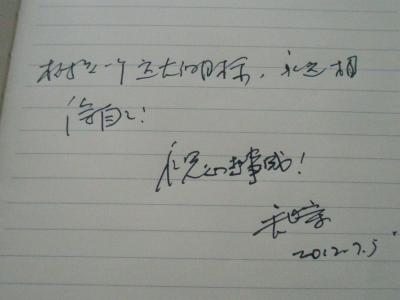 树立一个远大的目标，永远相
信自己！
永远心想事成！
2012.7.5